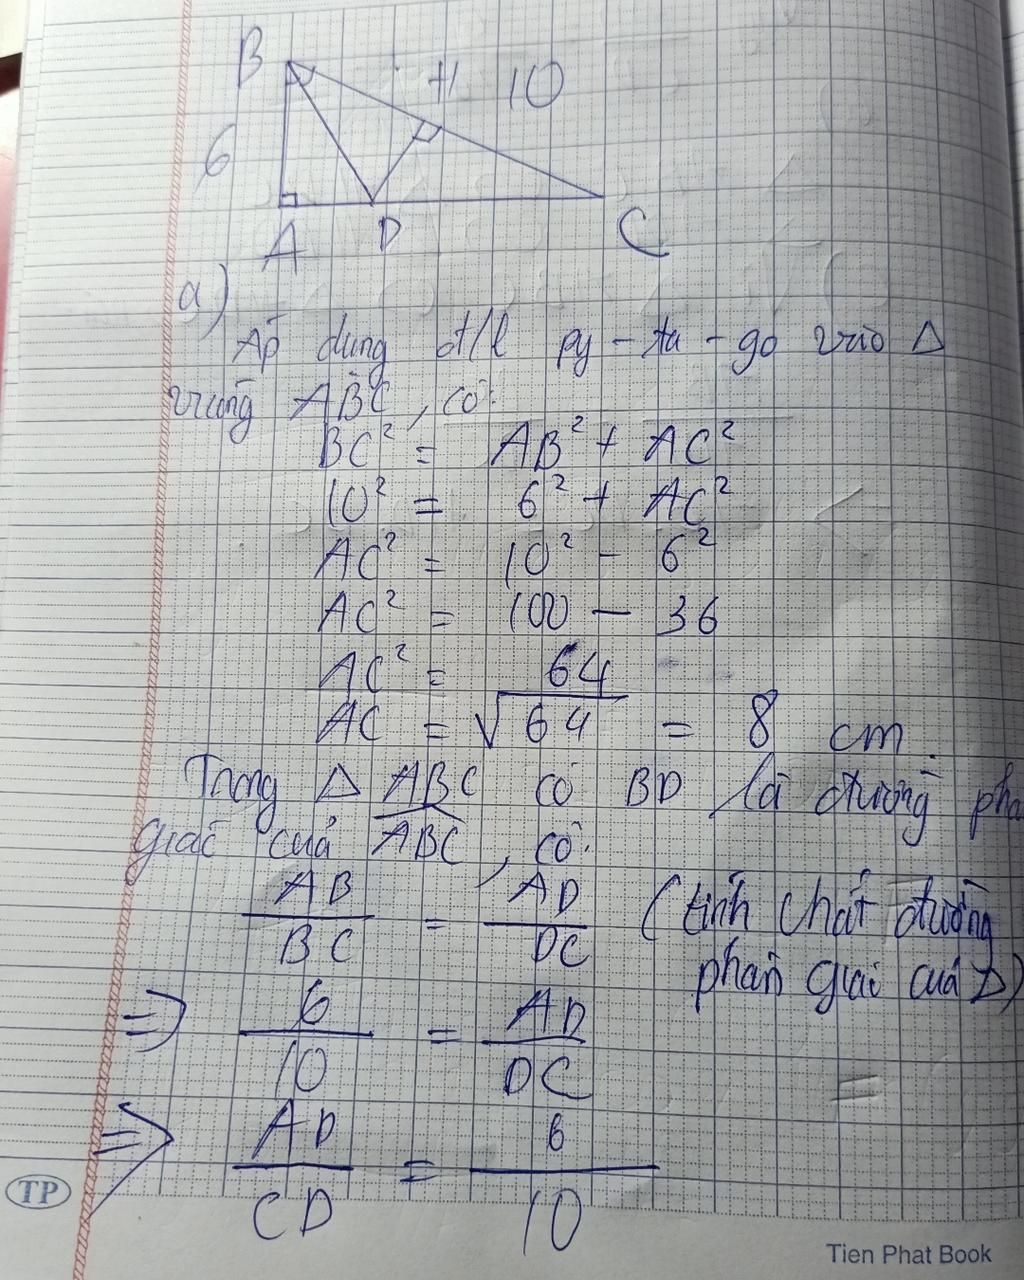 B
H 10
6
A D C
a)
Áp dụng đ/l py - ta - go vào Δ
vuông ABC, có:
BC² = AB² + AC²
10² = 6² + AC²
AC² = 10² - 6²
AC² = 100 - 36
AC² = 64
AC = √64 = 8 cm.
Trong Δ ABC có BD là đường phâ
giác của ABC, có:
AB/BC = AD/DC (tính chất đường
phân giác của Δ)
=> 6/10 = AD/DC
=
=> AD/CD = 6/10
TP
Tien Phat Book